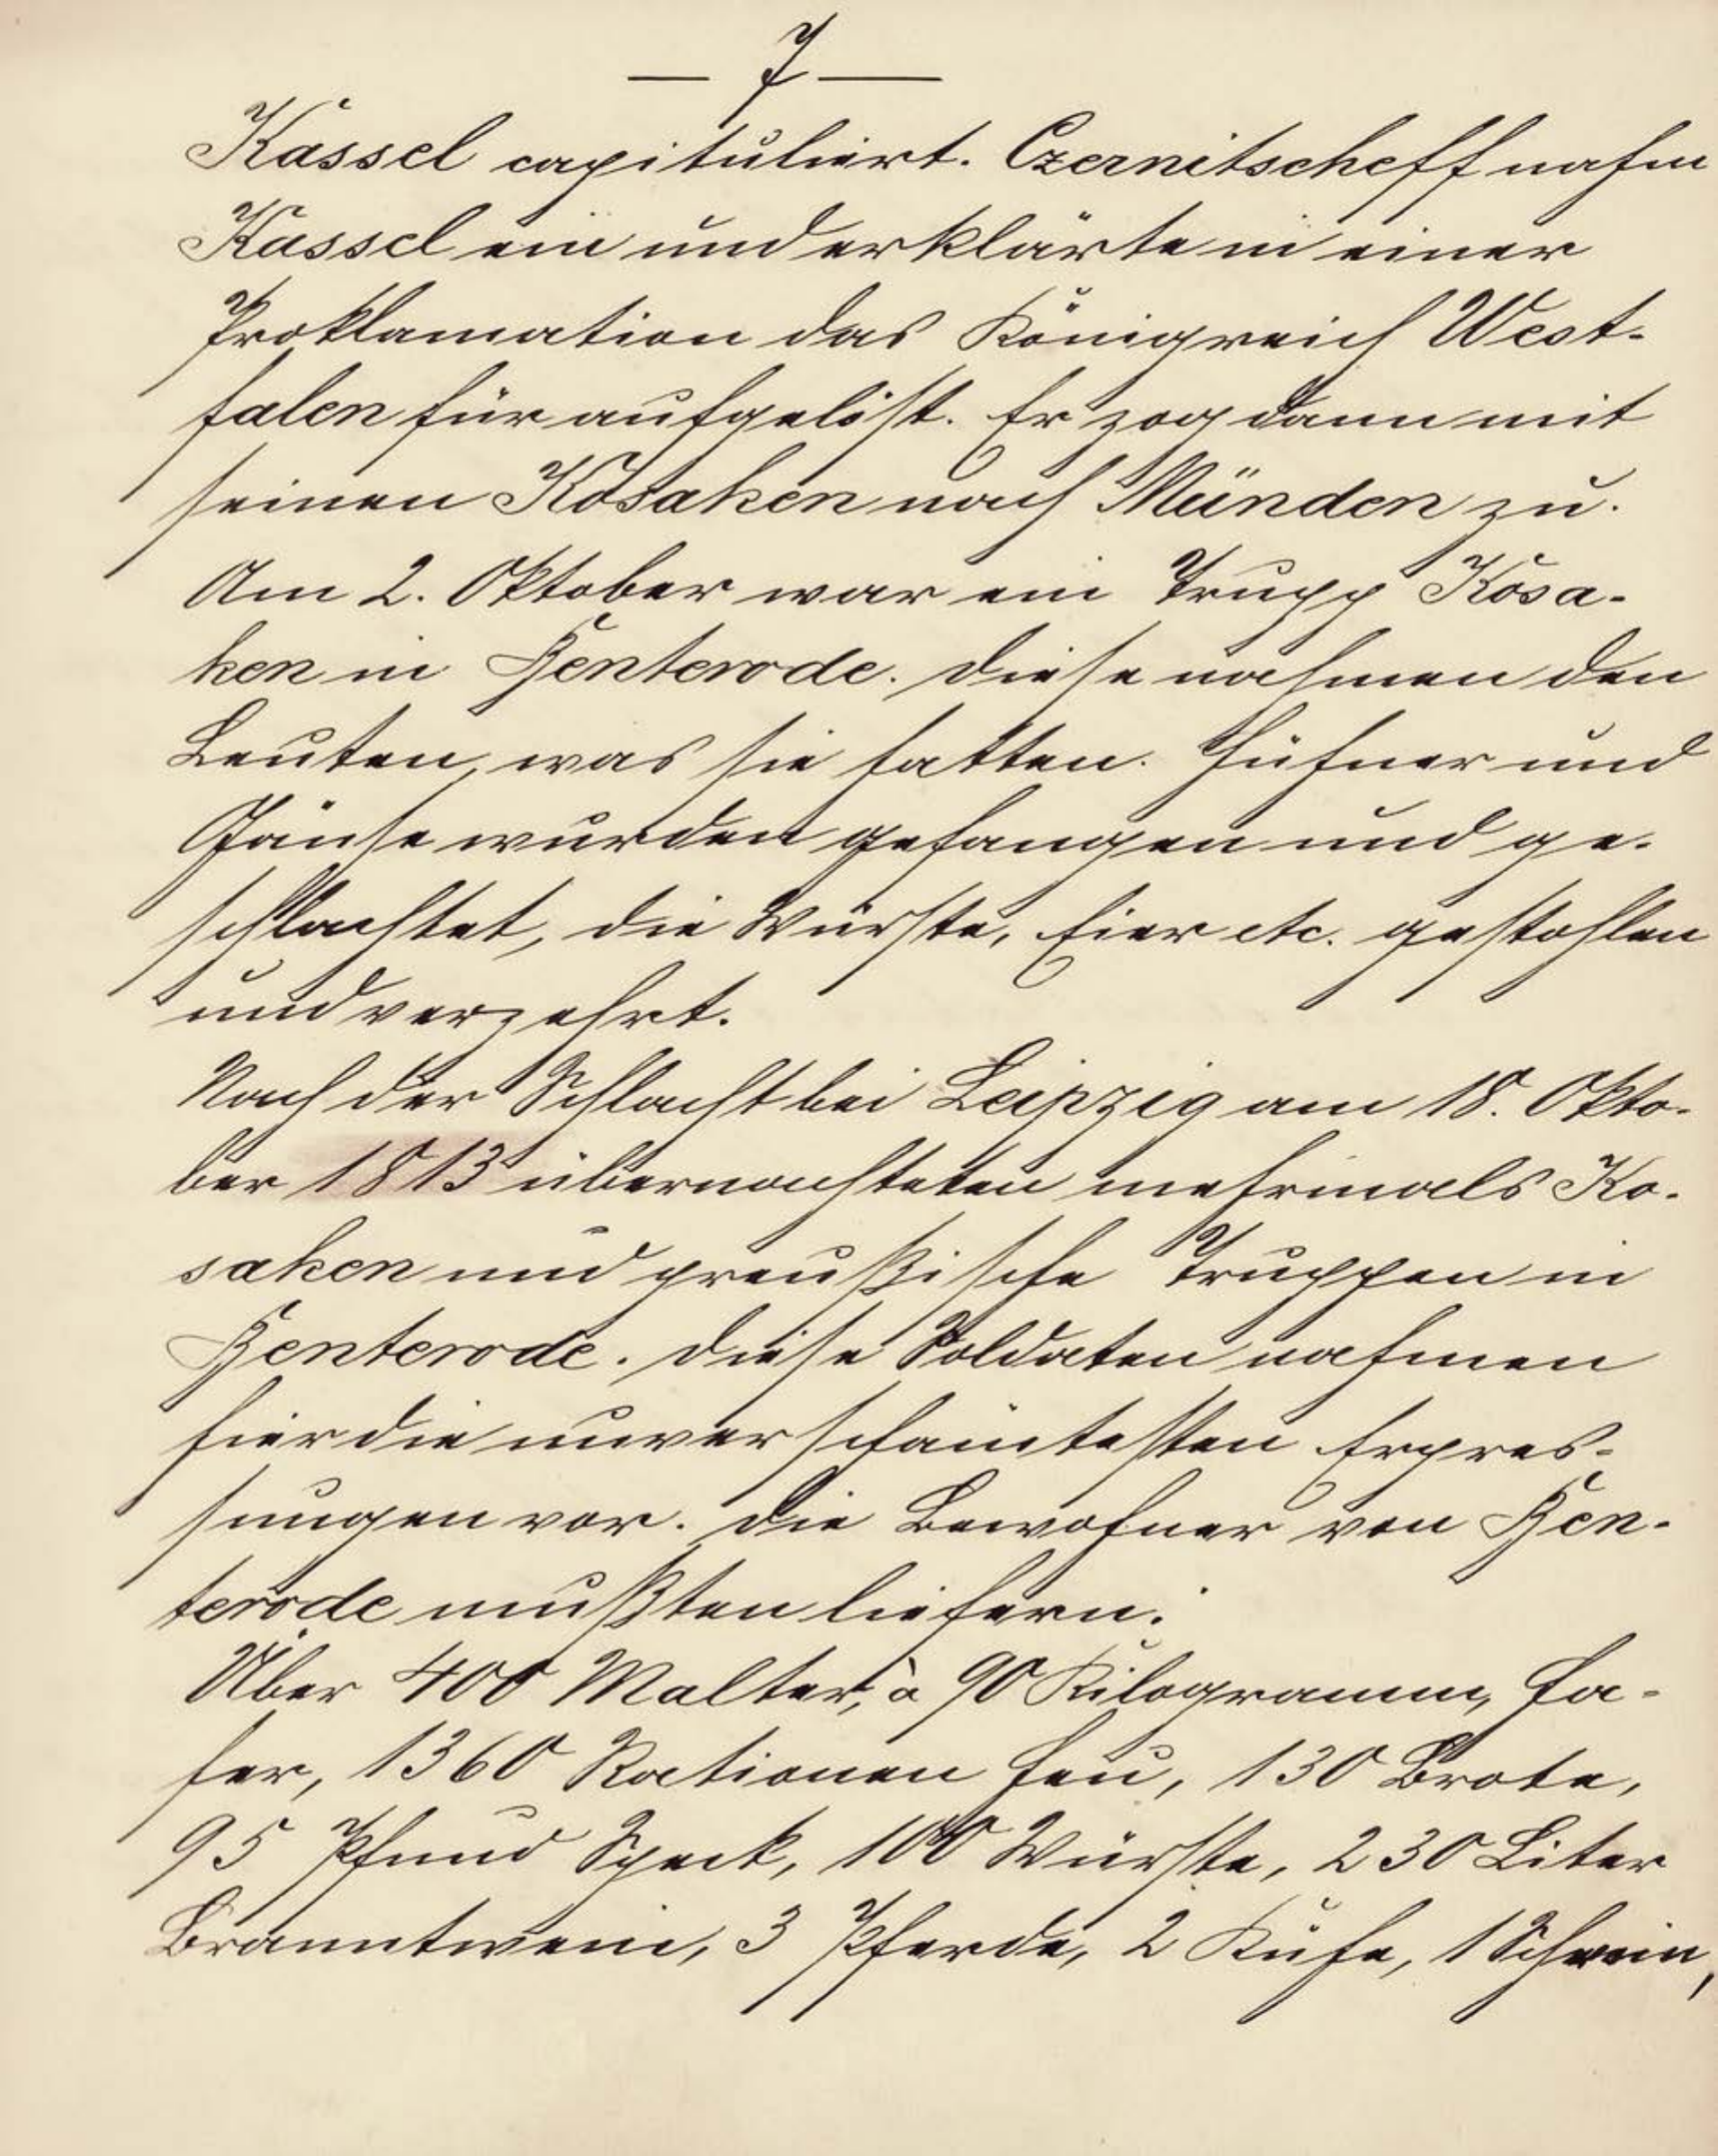 — 7 —
Kassel capituliert. Czernitscheff nahm
Kassel ein und erklärte in einer
Proklamation das Königreich West-
falen für aufgelöst. Er zog dann mit
seinen Kosaken nach Münden zu.
Am 2. Oktober war ein Trupp Kosa-
ken in Genterode. Diese nahmen den
Leuten, was sie hatten. Hühner und
Gänse wurden gefangen und ge-
schlachtet, die Würste, Eier etc. gestohlen
und verzehrt.
Nach der Schlacht bei Leipzig am 18. Okto-
ber 1813 übernachteten mehrmals Ko-
saken und preußische Truppen in
Genterode. Diese Soldaten nahmen
hier die unverschämtesten Erpres-
sungen vor. Die Bewohner von Gen-
terode mußten liefern:
Über 400 Malter, à 90 Kilogramm, Ha-
fer, 1360 Rationen Heu, 130 Brote,
95 Pfund Speck, 100 Würste, 230 Liter
Branntwein, 3 Pferde, 2 Kühe, 1 Schwein,